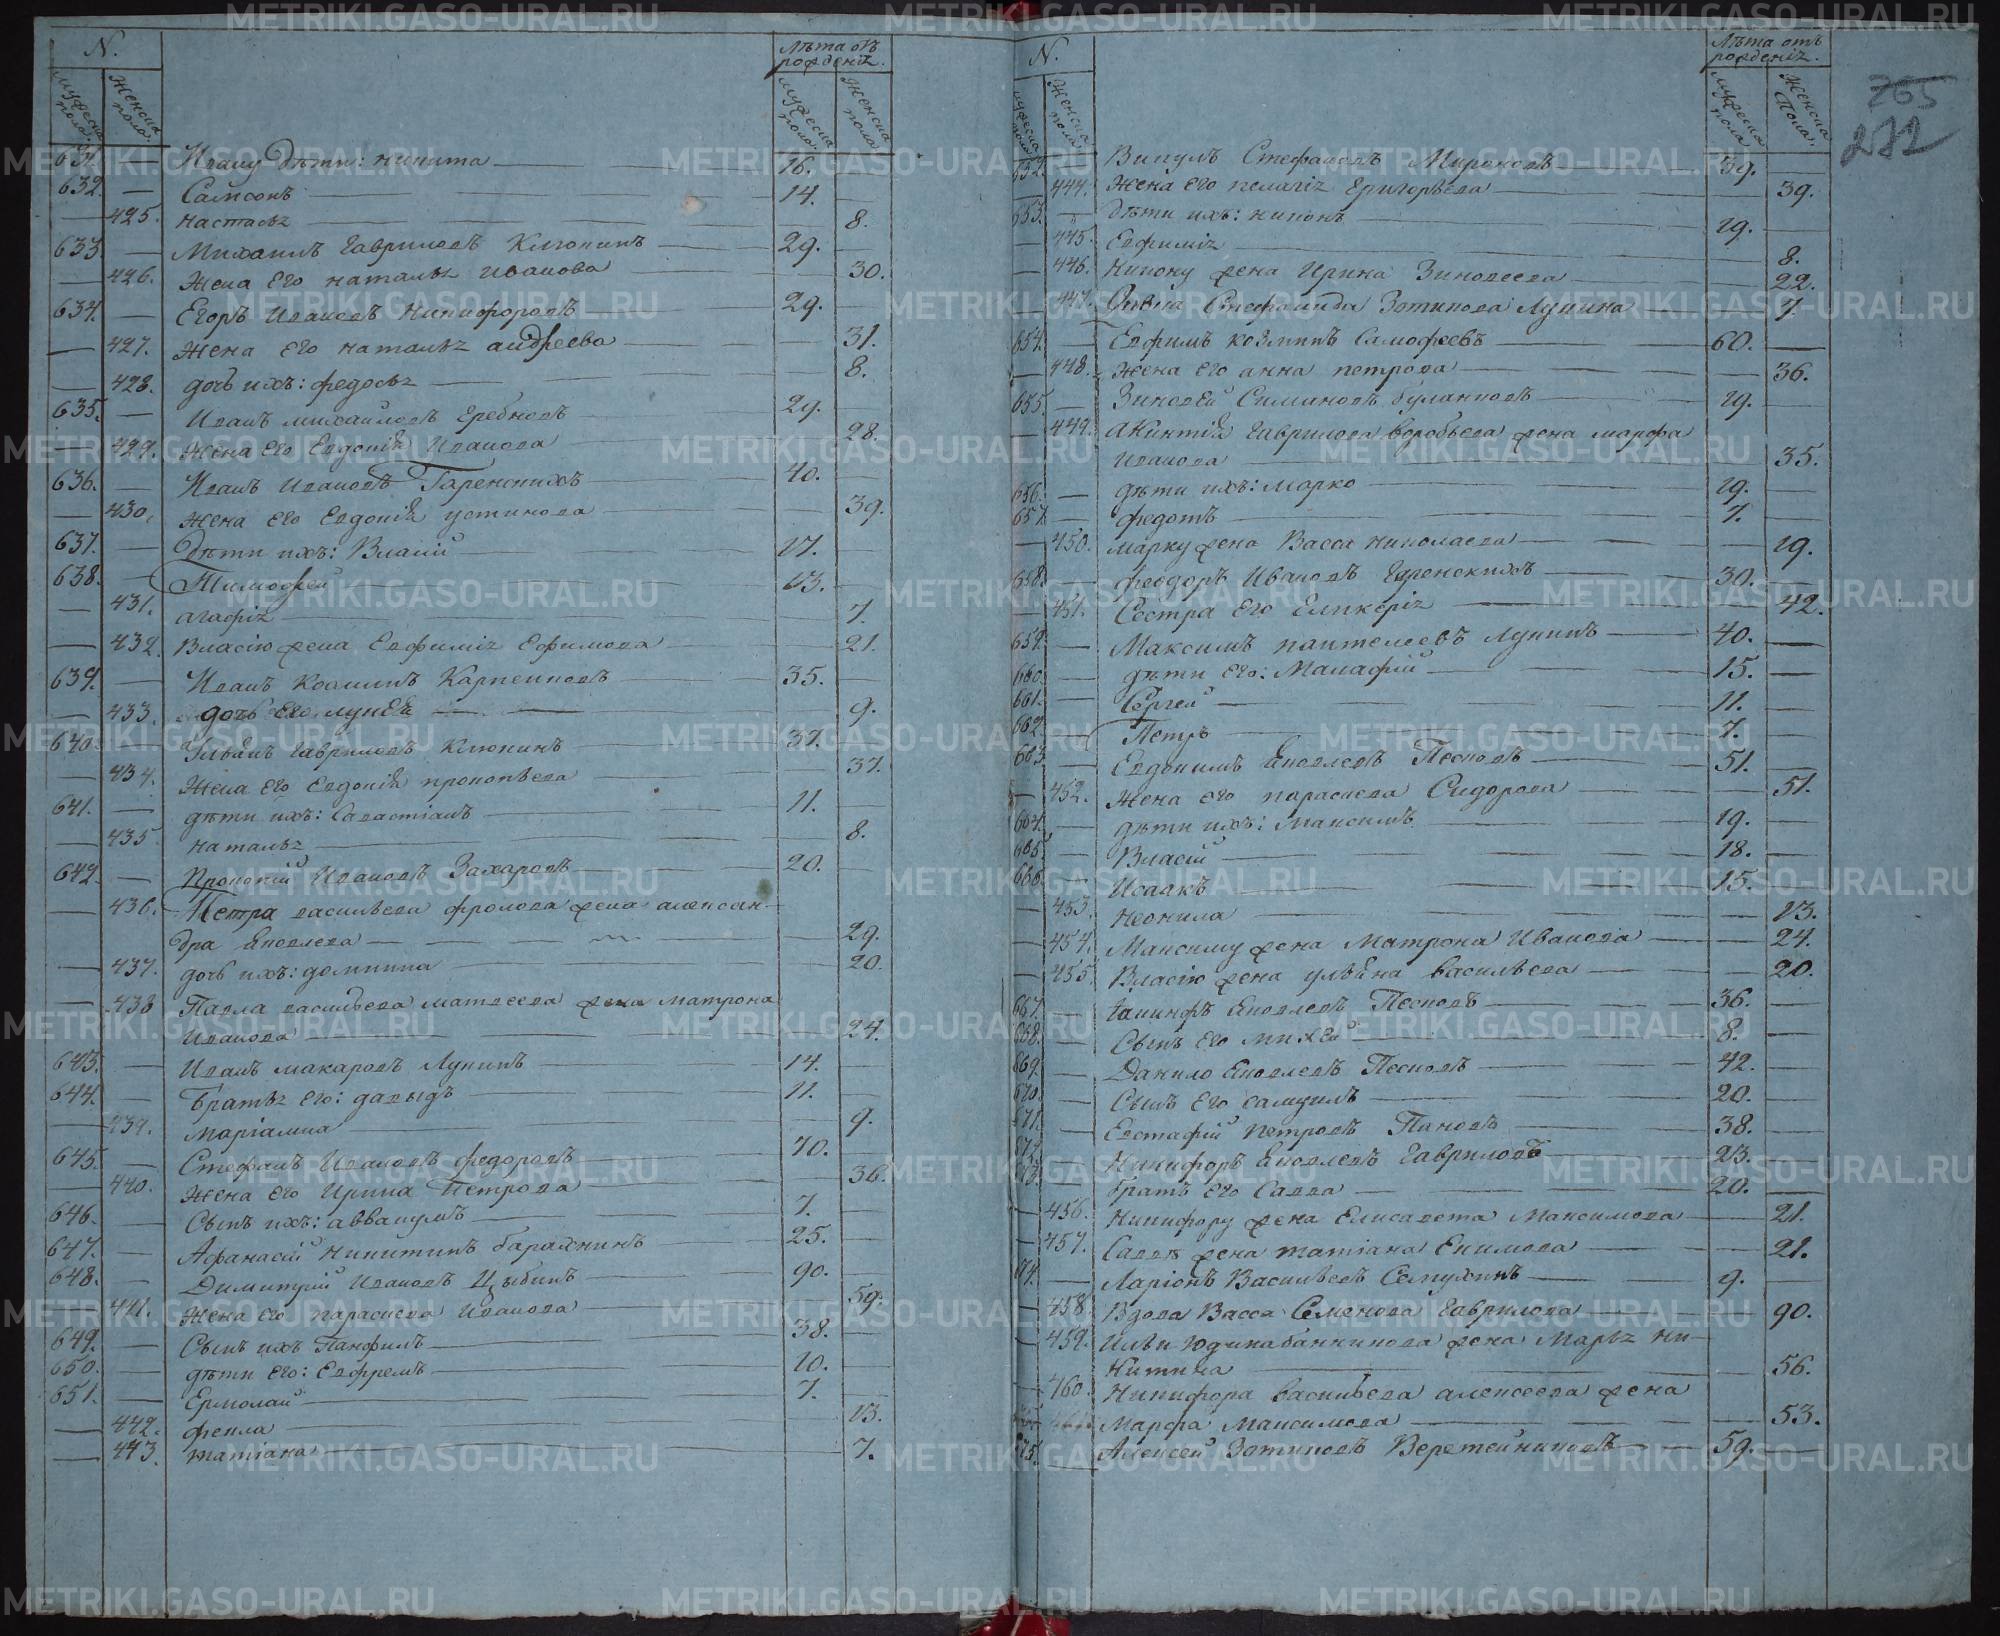 N.
Лѣта отъ рожденія.
Мужеска пола.
Женска пола.
Мужеска пола.
Женска пола.
631. — Ивану дѣти: никита — 16.
632. — Самсонъ — 14.
— 425. настасья — 8.
633. — Михаилъ Гавриловъ Клюкинъ — 29.
— 426. Жена Его наталья иванова — 30.
634. — Егоръ Ивановъ Никифоровъ — 29.
— 427. Жена Его наталья андреева — 31.
— 428. дочь ихъ: федосья — 8.
635. — Иванъ михаиловъ — 29.
— 429. Жена Его Евдокія Иванова — 28.
636. — Иванъ Ивановъ Гаренскихъ — 40.
— 430. Жена Его Евдокія устинова — 39.
637. — Дѣти ихъ: Власій — 17.
638. — Тимофей — 13.
— 431. агафія — 7.
— 432. Власію жена Евфимія Ефимова — 21.
639. — Иванъ Козминъ Карпенковъ — 35.
— 433. дочь Его — 9.
640. — Гавриловъ Клюкинъ — 37.
— 434. Жена Его Евдокія прокопьева — 37.
641. — дѣти ихъ: Савастіанъ — 11.
— 435. наталья — 8.
642. — Прокопій Ивановъ Захаровъ — 20.
— 436. Петра васильева фролова жена алексан-
дра Яковлева — 29.
— 437. дочь ихъ: домникиа — 20.
— 438 Павла васильева матвеева жена матрона
Иванова — 24.
643. — Иванъ макаровъ Лунинъ — 14.
644. — Братья Его: давыдъ — 11.
— 439. маріамна — 9.
645. — Стефанъ Ивановъ федоровъ — 70.
— 440. Жена Его Ирина Петрова — 36.
646. — Сынъ ихъ: аввакумъ — 7.
647. — Афанасій Никитинъ — 25.
648. — Димитрій Ивановъ Цыбинъ — 90.
— 441. Жена Его параскева Иванова — 59.
649. — Сынъ ихъ Панфилъ — 38.
650. — дѣти Его: Евфремъ — 10.
651. — Ермолай — 7.
— 442. фекла — 13.
— 443. татіана — 7.
N.
Лѣта отъ рожденія.
Мужеска пола.
Женска пола.
Мужеска пола.
Женска пола.
265
272
652. — Викулъ Стефановъ Мироновъ — 59.
— 444. Жена Его пелагія Григорьева — 39.
653. — дѣти ихъ: никонъ — 19.
— 445. Евфимія — 8.
— 446. Никону жена Ирина Зиновеева — 22.
— 447. Стефанида Зотикова Лунина — 7.
654. — Евфимъ козминъ — 60.
— 448. Жена Его анна петрова — 36.
655. — Зиновей Симановъ булановъ — 19.
— 449. Акинтія Гаврилова воробьева жена марфа
Иванова — 35.
656. — дѣти ихъ: марко — 19.
657. — федотъ — 7.
— 450. марку жена Васса николаева — 19.
658. — феодоръ Ивановъ Гаренскихъ — 30.
— 451. Сестра Его Гликерія — 42.
659. — Максимъ пантелеевъ Лунинъ — 40.
660. — дѣти Его: Малафій — 15.
661. — Сергей — 11.
662. — Петръ — 7.
663. — Евдокимъ Яковлевъ Песковъ — 51.
— 452. Жена Его параскева Сидорова — 51.
664. — дѣти ихъ: Максимъ — 19.
665. — Власій — 18.
666. — Исаакъ — 15.
— 453. Неонила — 13.
— 454. Максиму жена Матрона Иванова — 24.
— 455. Власію жена ульяна васильева — 20.
667. — Іакинфъ Яковлевъ Песковъ — 36.
668. — Сынъ Его михей — 8.
669. — Данило Яковлевъ Песковъ — 42.
670. — Сынъ Его самуилъ — 20.
671. — Евстафій петровъ Пановъ — 38.
672. — Никифоръ Яковлевъ Гавриловъ — 23.
673. — братъ Его Савва — 20.
— 456. Никифору жена Елисавета Максимова — 21.
— 457. Саввѣ жена татіана Екимова — 21.
674. — Ларіонъ Васильевъ Семухинъ — 9.
— 458. Вдова Васса Семенова Гаврилова — 90.
— 459. Ильи Юдина банникова жена Марья Ни-
китина — 56.
— 460. Никифора васильева алексеева жена
Марфа Максимова — 53.
675. Алексей Зотиковъ Веретенниковъ — 59.